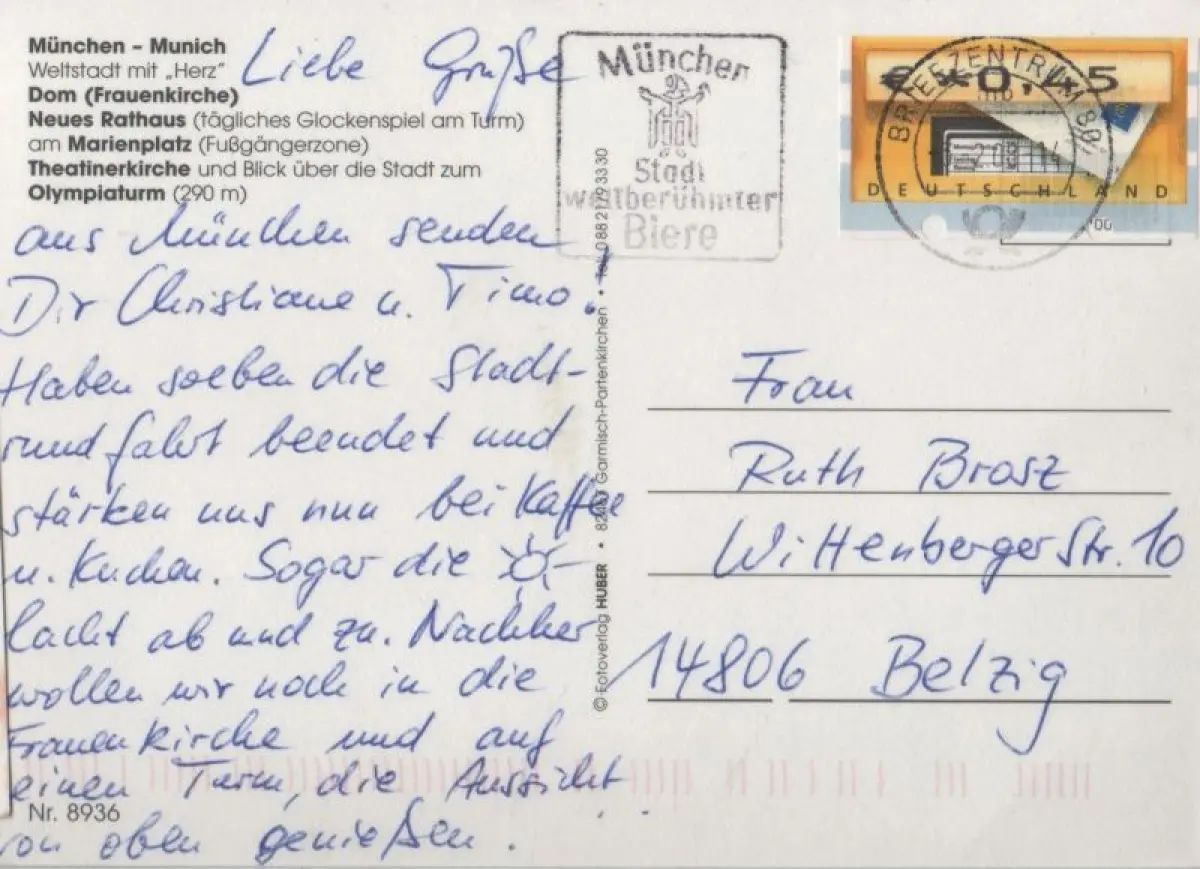 München – Munich
Weltstadt mit „Herz“
Dom (Frauenkirche)
Neues Rathaus (tägliches Glockenspiel am Turm)
am Marienplatz (Fußgängerzone)
Theatinerkirche und Blick über die Stadt zum
Olympiaturm (290 m)
Liebe Grüße
aus München senden
Dir Christiane u. Timo.
Haben soeben die Stadt-
rundfahrt beendet und
stärken uns nun bei Kaffee
u. Kuchen. Sogar die
lacht ab und zu. Nachher
wollen wir noch in die
Frauenkirche und auf
einen Turm, die Aussicht
von oben genießen.
Nr. 8936
© Fotoverlag HUBER • 82467 Garmisch-Partenkirchen • Tel. 08821/93330
München
Stadt
weltberühmter
Biere
BRIEFZENTRUM 80
DEUTSCHLAND
Frau
Ruth Brosz
Wittenberger Str. 10
14806 Belzig